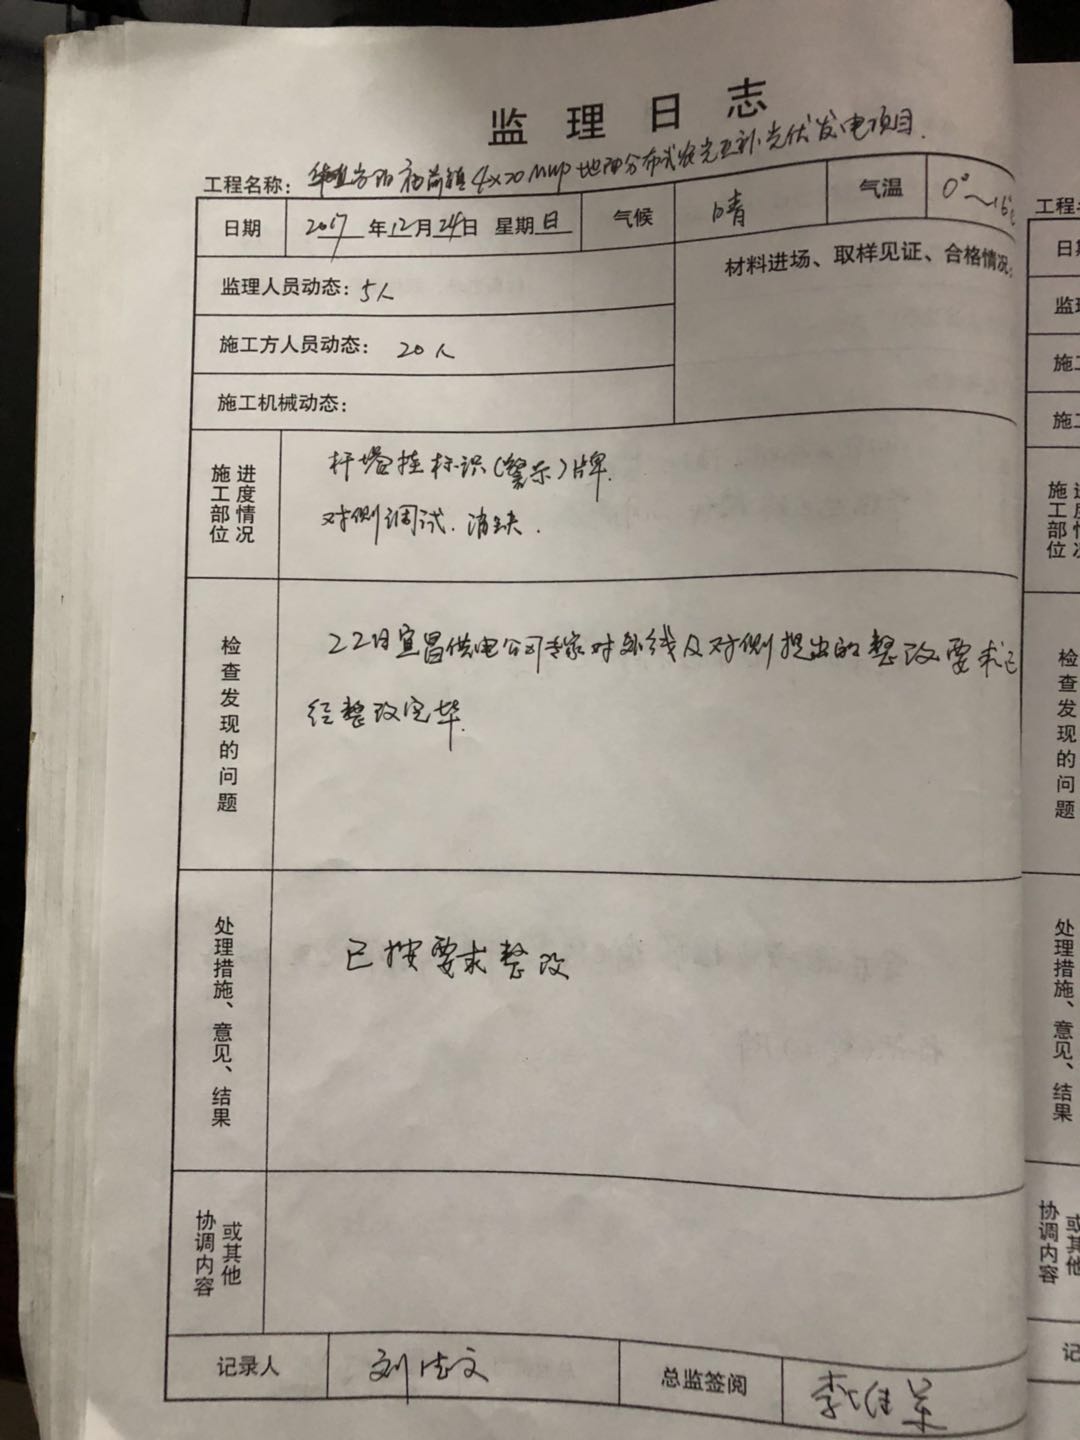 监理日志
工程名称: 4×20MWp地面分布式农光互补光伏发电项目.
日期 2017年12月24日 星期日 气候 晴 气温 0°~16℃
监理人员动态: 5人
材料进场、取样见证、合格情况:
施工方人员动态: 20人
施工机械动态:
施工部位 进度情况
杆塔挂标识(警示)牌.
对侧调试.消缺.
检查发现的问题
22日宜昌供电公司专家对外线及对侧提出的整改要求已
经整改完毕.
处理措施、意见、结果
已按要求整改
协调内容 或其他
记录人 刘 文 总监签阅 李
工程
日
监
施工
施工
施工部位
检查发现的问题
处理措施、意见、结果
协调内容 或其他
记